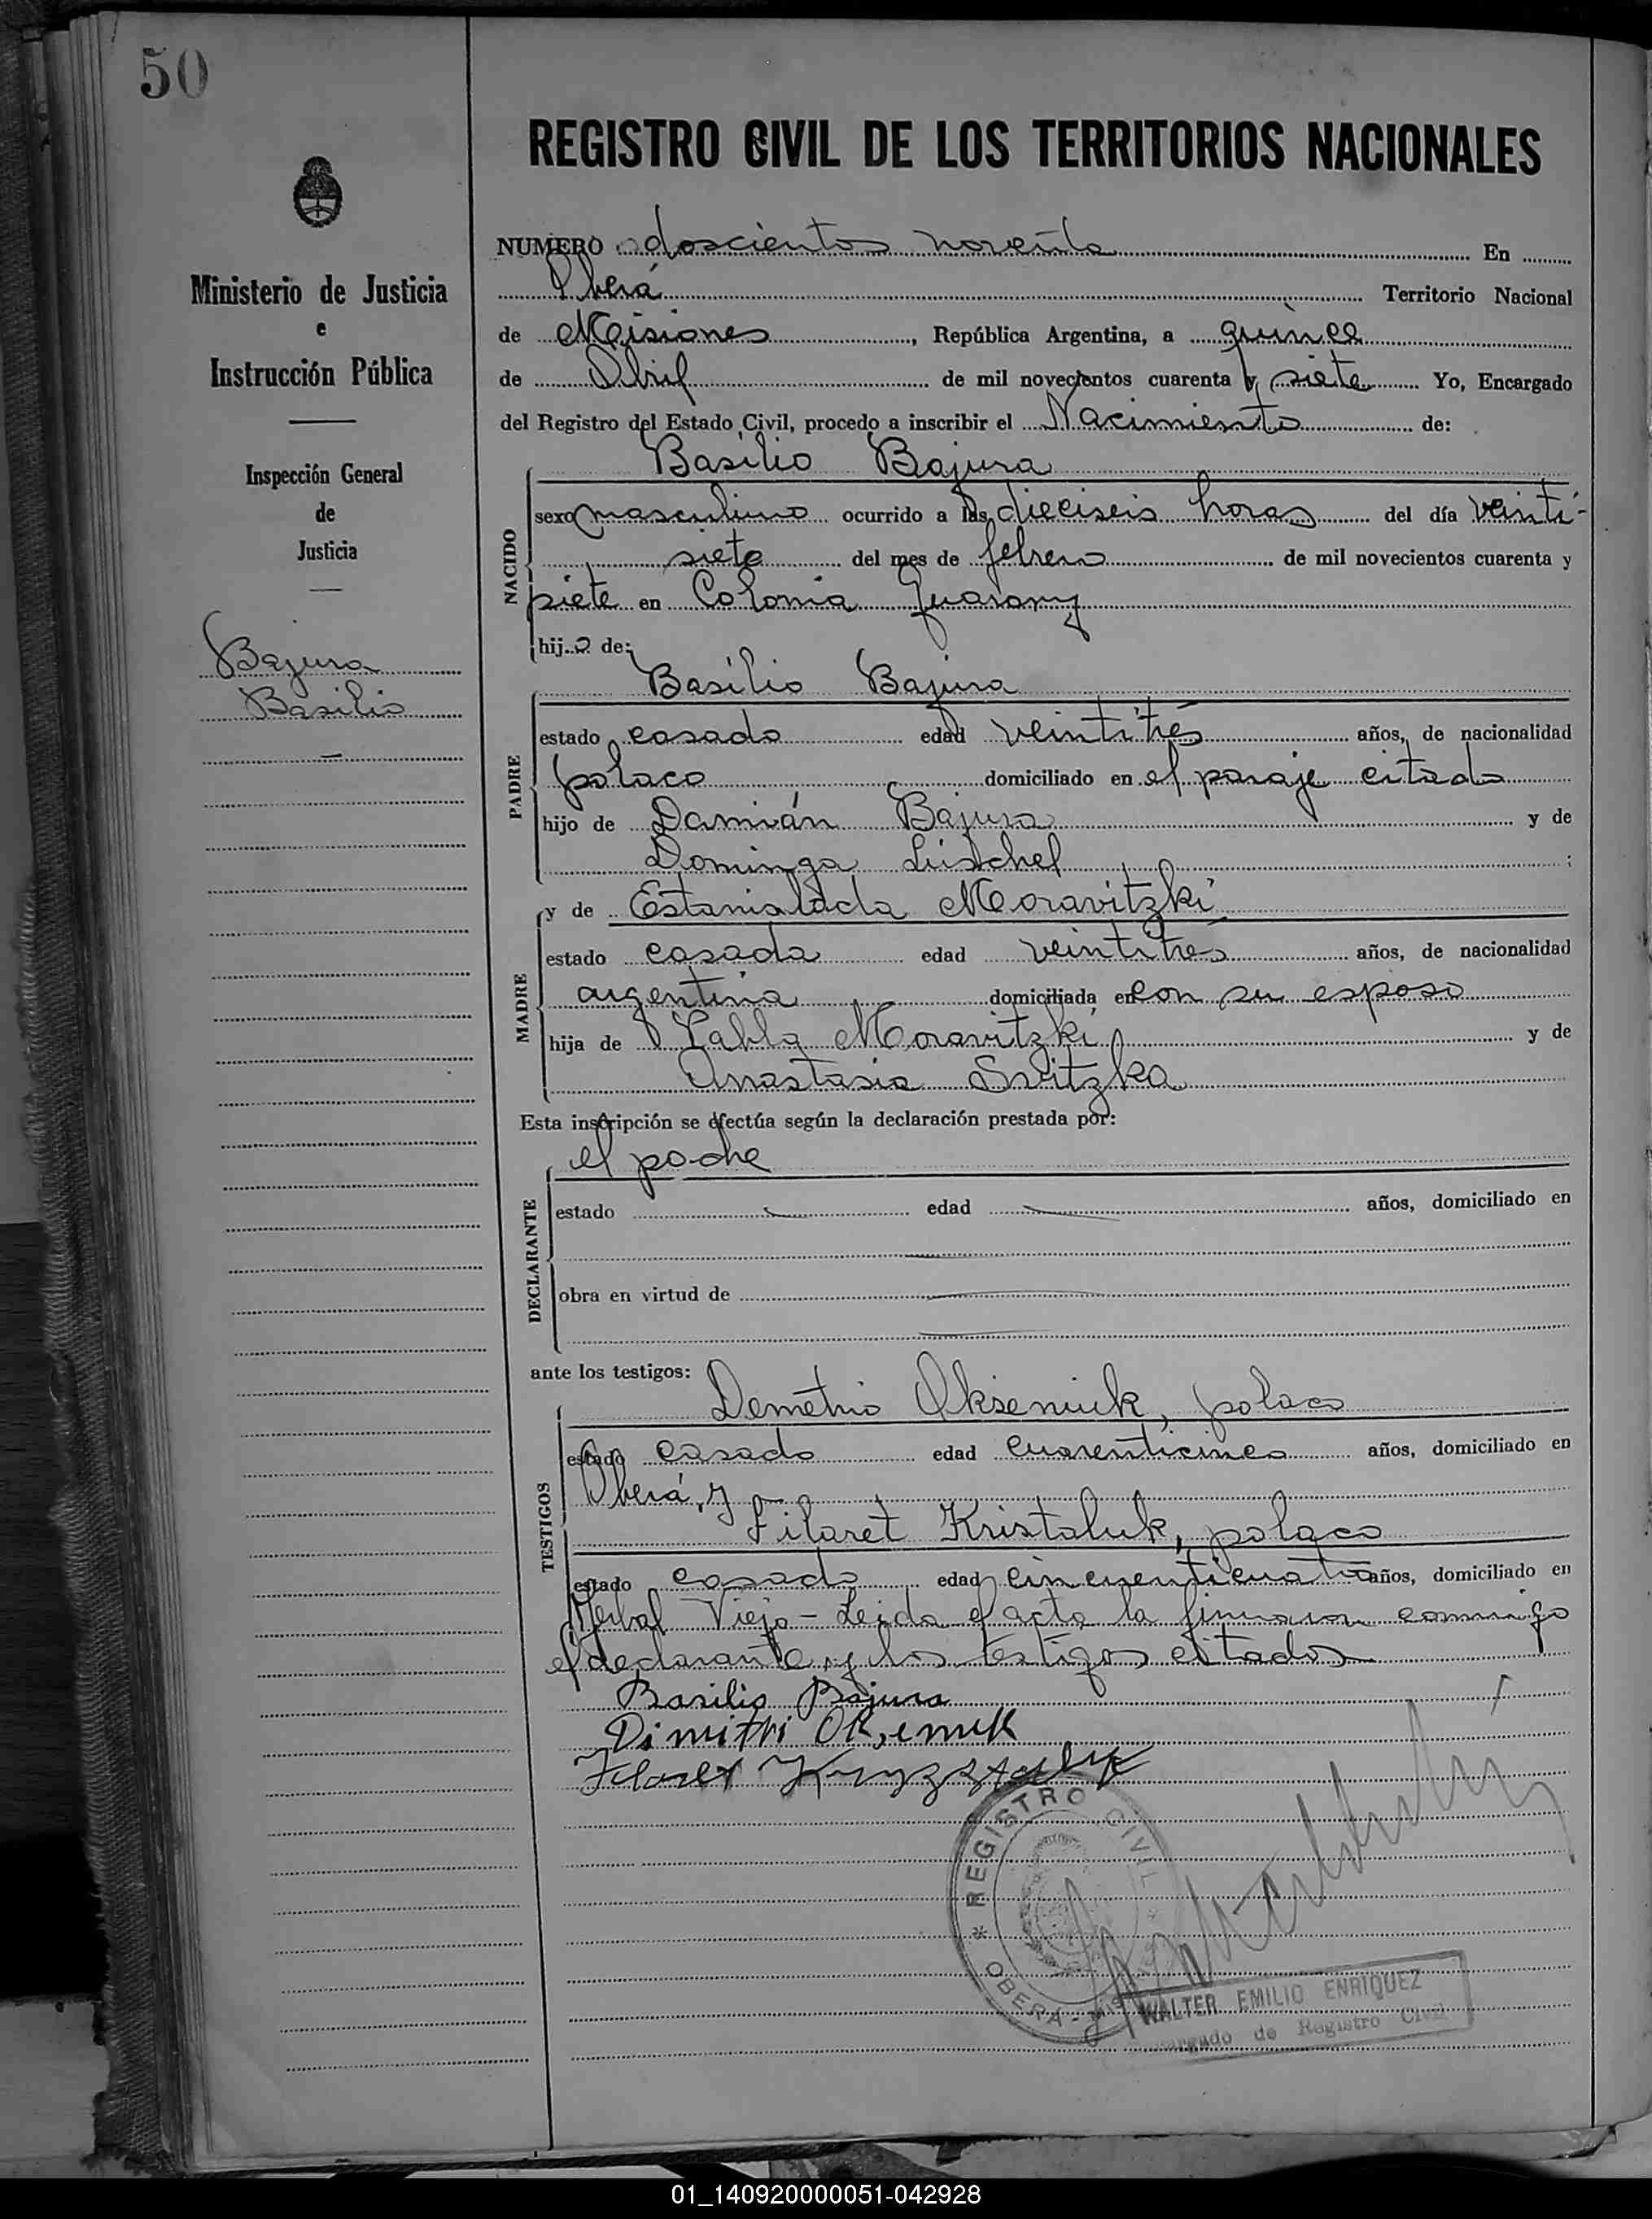 50
REGISTRO CIVIL DE LOS TERRITORIOS NACIONALES
Ministerio de Justicia
e
Instrucción Pública
Inspección General
de
Justicia
Bajura
Basilio
NUMERO doscientos noventa En
Oberá Territorio Nacional
de Misiones, República Argentina, a quince
de Abril de mil novecientos cuarenta y siete Yo, Encargado
del Registro del Estado Civil, procedo a inscribir el Nacimiento de:
Basilio Bajura
NACIDO
sexo masculino ocurrido a las dieciseis horas del día veinti-
siete del mes de febrero de mil novecientos cuarenta y
siete en Colonia Guarany
hijo de:
Basilio Bajura
PADRE
estado casado edad veintitrés años, de nacionalidad
polaco domiciliado en el paraje citado
hijo de Damián Bajura y de
Dominga ;
y de Estanislada Moravitzki
MADRE
estado casada edad veintitrés años, de nacionalidad
argentina domiciliada en con su esposo
hija de Pablo Moravitzki y de
Anastasia Svitzka
Esta inscripción se efectúa según la declaración prestada por:
el padre
DECLARANTE
estado edad años, domiciliado en
obra en virtud de
ante los testigos:
Demetrio Okseniuk, polaco
TESTIGOS
estado casado edad cuarenticinco años, domiciliado en
Oberá, y
Filaret Kristaluk, polaco
estado casado edad cincuenticuatro años, domiciliado en
Yerbal Viejo - Leida el acta la firmaron conmigo
el declarante y los testigos citados
Basilio Bajura
Dimitri
REGISTRO CIVIL
OBERA - MIS
WALTER EMILIO ENRIQUEZ
Encargado de Registro Civil
01_140920000051-042928